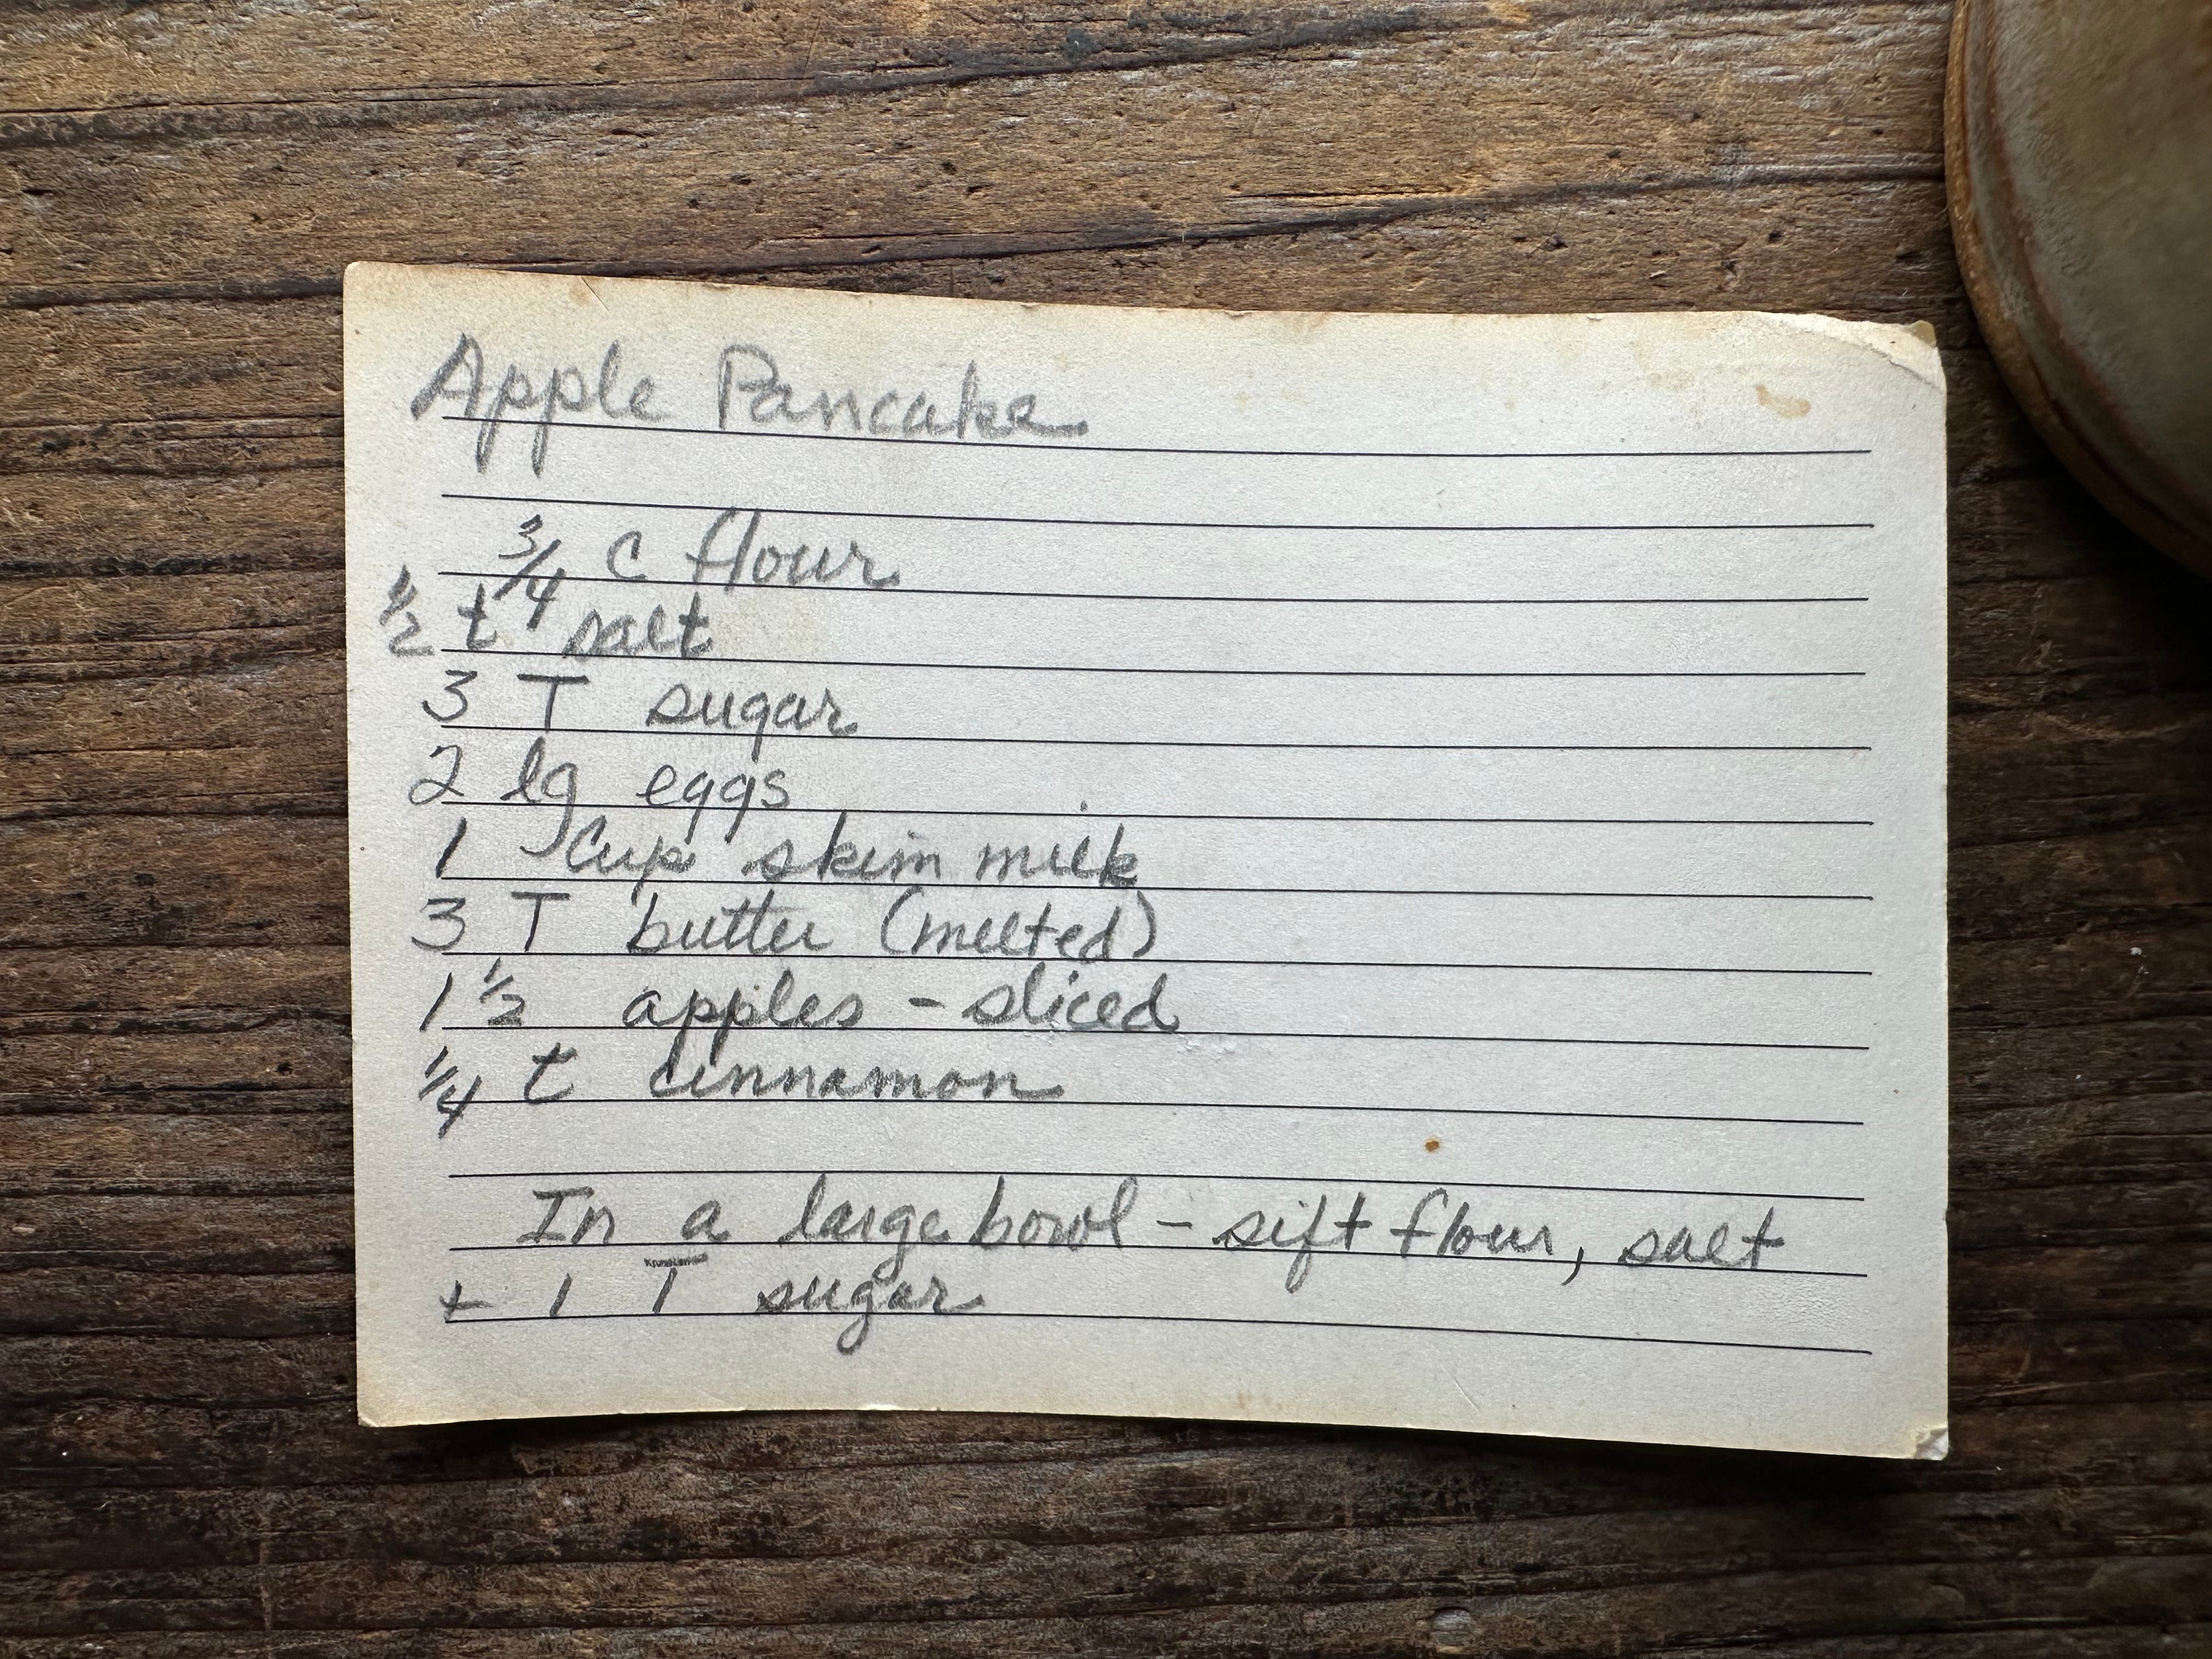 Apple Pancake
3/4 c flour
1/2 t salt
3 T sugar
2 lg eggs
1 Cup skim milk
3 T butter (melted)
1 1/2 apples - sliced
1/4 t cinnamon
In a large bowl - sift flour, salt
+ 1 T sugar